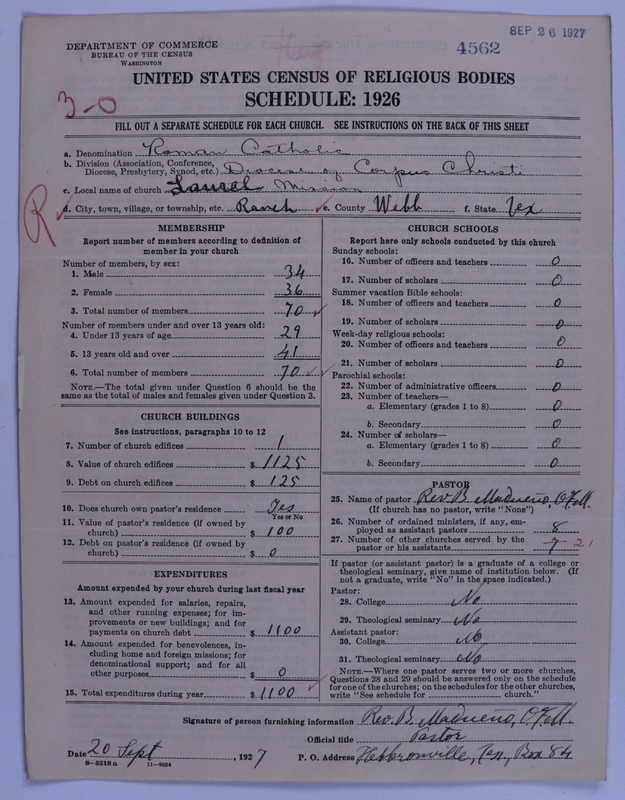 SEP 26 1927
4562
DEPARTMENT OF COMMERCE
BUREAU OF THE CENSUS
WASHINGTON
UNITED STATES CENSUS OF RELIGIOUS BODIES
SCHEDULE: 1926
3-0
FILL OUT A SEPARATE SCHEDULE FOR EACH CHURCH. SEE INSTRUCTIONS ON THE BACK OF THIS SHEET
a. Denomination Roman Catholic
b. Division (Association, Conference,
Diocese, Presbytery, Synod, etc.) Diocese of Corpus Christi
c. Local name of church Laurel Mission
R
d. City, town, village, or township, etc. Ranch e. County Webb f. State Tex
MEMBERSHIP
Report number of members according to definition of
member in your church
Number of members, by sex:
1. Male 34
2. Female 36
3. Total number of members 70
Number of members under and over 13 years old:
4. Under 13 years of age 29
5. 13 years old and over 41
6. Total number of members 70
NOTE.—The total given under Question 6 should be the
same as the total of males and females given under Question 3.
CHURCH BUILDINGS
See instructions, paragraphs 10 to 12
7. Number of church edifices 1
8. Value of church edifices $ 1125
9. Debt on church edifices $ 125
10. Does church own pastor's residence Yes
Yes or No
11. Value of pastor's residence (if owned by
church) $ 100
12. Debt on pastor's residence (if owned by
church) $ 0
EXPENDITURES
Amount expended by your church during last fiscal year
13. Amount expended for salaries, repairs,
and other running expenses; for im-
provements or new buildings; and for
payments on church debt $ 1100
14. Amount expended for benevolences, in-
cluding home and foreign missions; for
denominational support; and for all
other purposes $ 0
15. Total expenditures during year $ 1100
CHURCH SCHOOLS
Report here only schools conducted by this church
Sunday schools:
16. Number of officers and teachers 0
17. Number of scholars 0
Summer vacation Bible schools:
18. Number of officers and teachers 0
19. Number of scholars 0
Week-day religious schools:
20. Number of officers and teachers 0
21. Number of scholars 0
Parochial schools:
22. Number of administrative officers 0
23. Number of teachers—
a. Elementary (grades 1 to 8) 0
b. Secondary 0
24. Number of scholars—
a. Elementary (grades 1 to 8) 0
b. Secondary 0
PASTOR
25. Name of pastor Rev. B. Madueño,
(If church has no pastor, write "None")
26. Number of ordained ministers, if any, em-
ployed as assistant pastors 8
27. Number of other churches served by the
pastor or his assistants 7 21
If pastor (or assistant pastor) is a graduate of a college or
theological seminary, give name of institution below. (If
not a graduate, write "No" in the space indicated.)
Pastor:
28. College No
29. Theological seminary No
Assistant pastor:
30. College No
31. Theological seminary No
NOTE.—Where one pastor serves two or more churches,
Questions 28 and 29 should be answered only on the schedule
for one of the churches; on the schedules for the other churches,
write "See schedule for church."
Signature of person furnishing information Rev. B. Madueño,
Official title Pastor
Date 20 Sept, 1927 P. O. Address Hebbronville, Tex, Box 84
8—5518a 11—9054